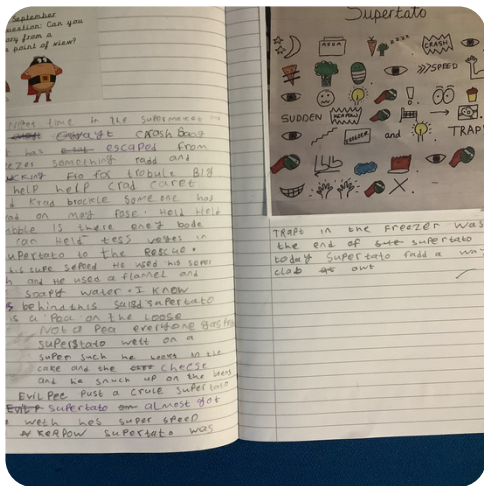 September
uestion: Can you
ory from a
point of view?
Night time in the supermarket
crash Bang
has escaped from
ezer something radd and
fro for trobule BIg
help help crad caret
d Krad brockle Some one has
ad on may fose. Held Held
ibble Is there eny bode
can Held tess voyes in
upertato to the rescue.
his supe sepeed He used his seper
h and He used a flannel and
soapy water. I know
s behind this saisd supertato
is a Pea on the loose
Not a Pea everyone
superstato wett on a
super sach he lookt in the
cake and the cheese
and he snuck up on the
Evil Pee Pust a crule supertato
supertato almost got
weth hes super speed
Kerpow supertato was
Supertato
ASDA
zzzz
CRASH
SPEED
SUDDEN
KERPOW
FREEZER
and
TRAP
TRAPt in the Freezer was
the end of supertato
today supertato fadd a way
clab out